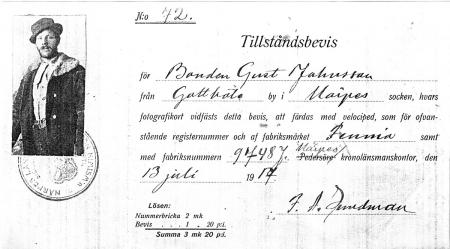 N:o 72.
Tillståndsbevis
för Bonden Gust Johnsson
från Gottböle by i Närpes socken, hvars
fotografikort vidfästs detta bevis, att färdas med velociped, som för ofvan-
stående registernummer och af fabriksmärket Fennia samt
Närpes
med fabriksnummer 97487. Pedersöre kronolänsmanskontor, den
13 juli 1917
Lösen:
Nummerbricka 2 mk
Bevis . . . 1 . 20 pi.
Summa 3 mk 20 pi.